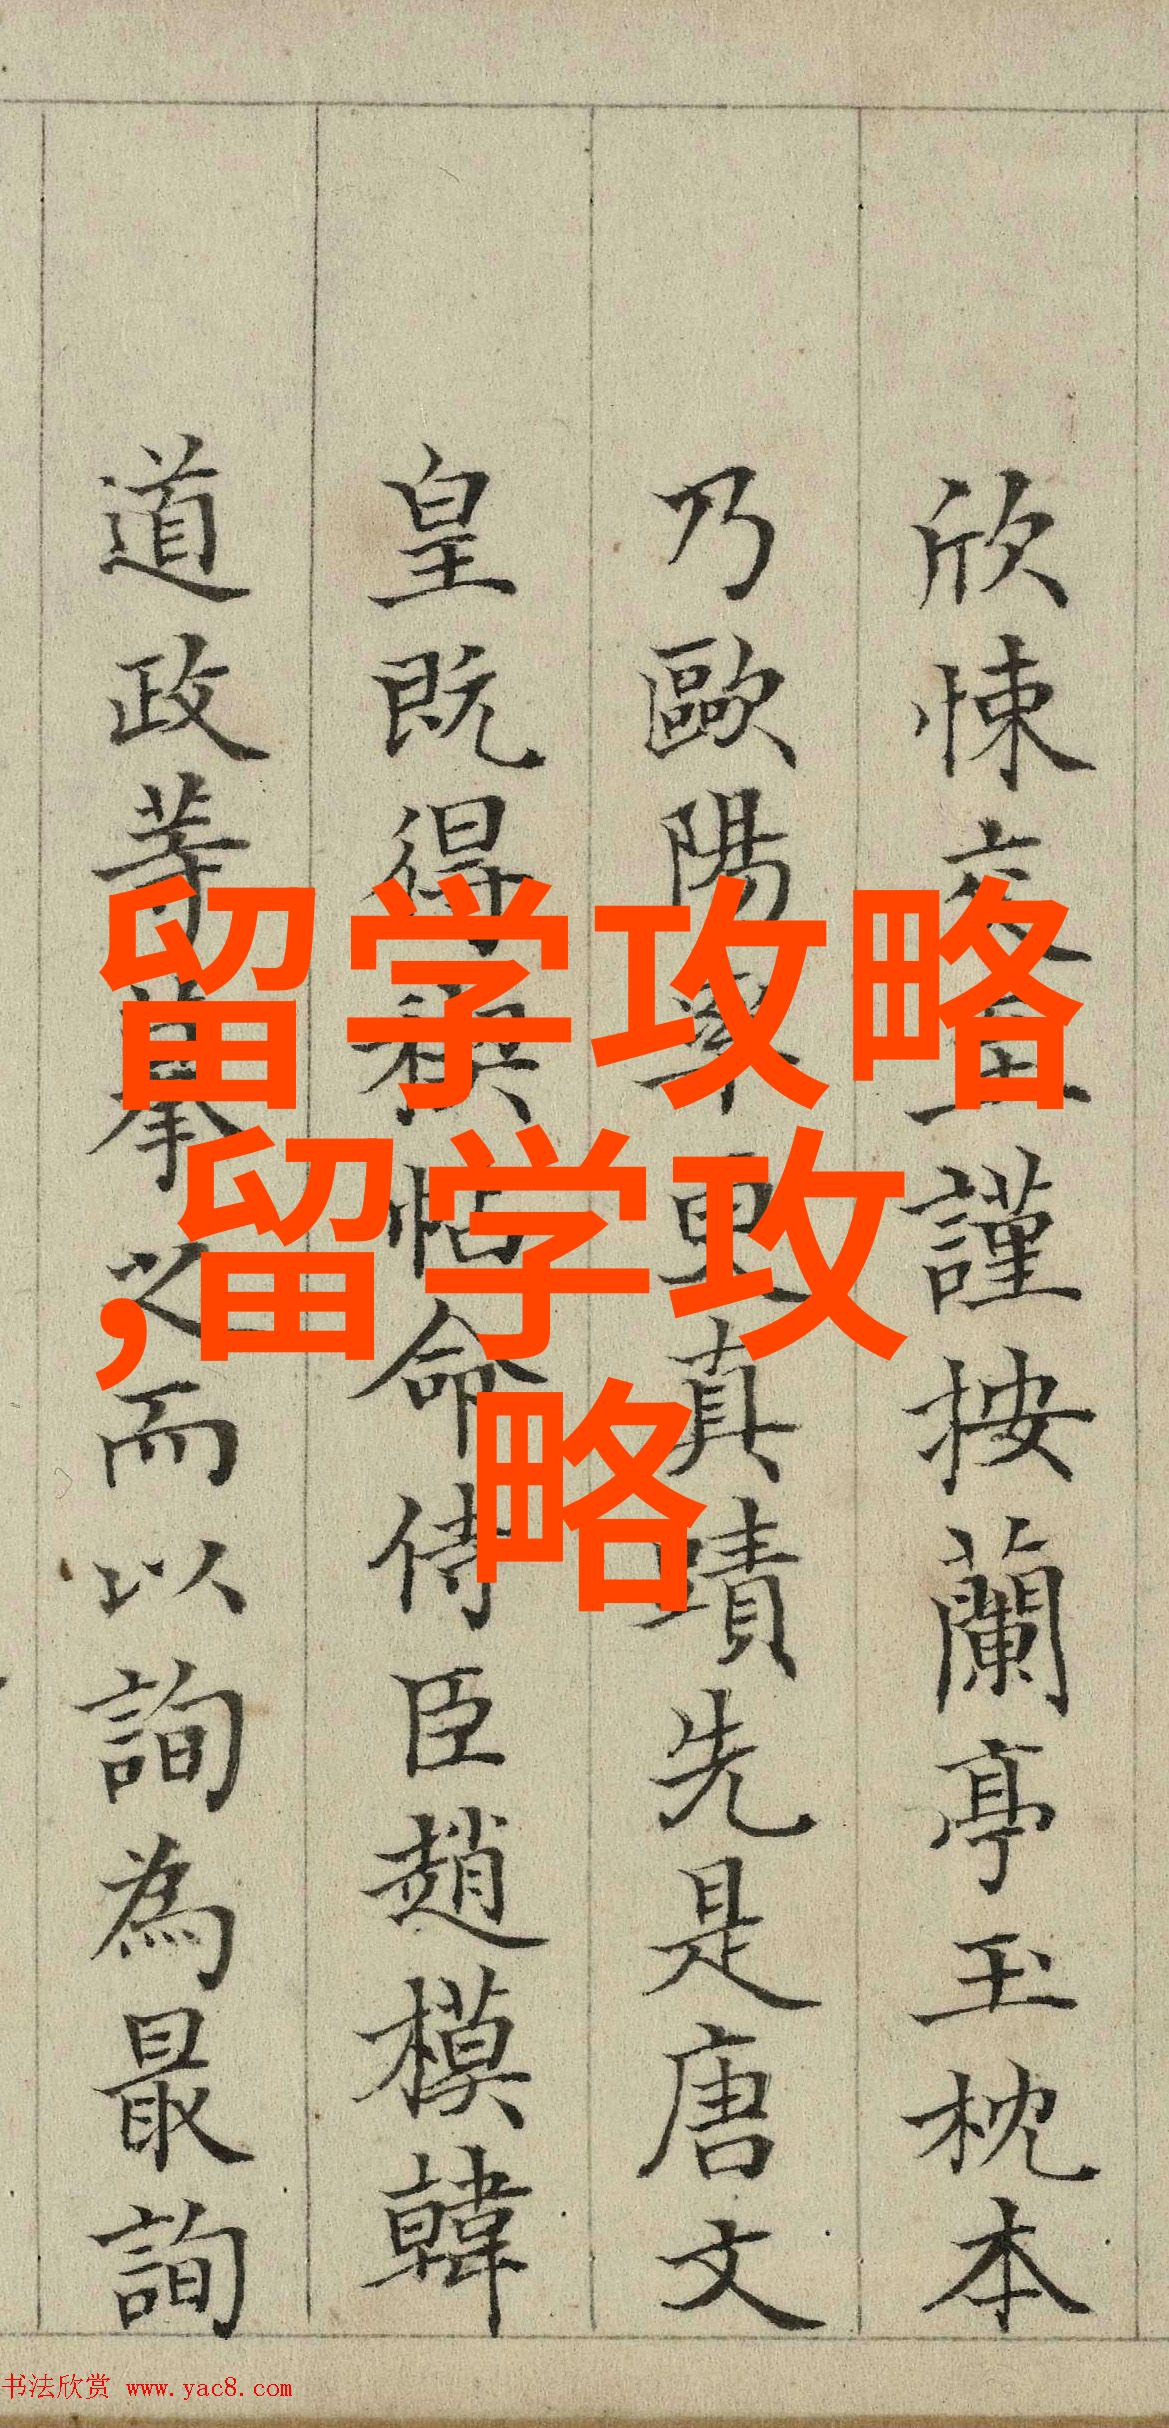 欣悚交至謹按蘭亭玉枕本
乃歐陽率更真蹟先是唐文
皇既得稧帖命侍臣趙模韓
道政等摹之而以詢為最詢
留学攻略
,留学攻
略
书法欣赏 www.yac8.com